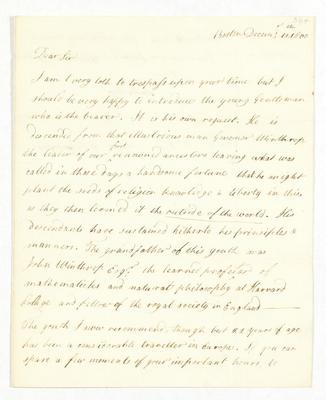 Boston Decem.r 11.th 1800
Dear Sir
I am very loth to trespass upon your time but I
should be very happy to introduce the young Gentleman
who is the bearer. It is his own request. He is
descended from that illustrious man Governor Winthrop
the leader of our first renowned ancestors leaving what was
called in those days a handsome fortune that he might
plant the seeds of religion knowledge & liberty in this,
as they then termed it the outside of the world. His
descendants have sustained hitherto his principles &
manners. The grandfather of this youth was
John Winthrop Esq.r the learned professor of
mathematics and natural philosophy at Harvard
College and fellow of the royal society in England—
The youth I now recommend, though but 23 years of age
has been a considerable traveller in Europe. If you can
spare a few moments of your important hours to